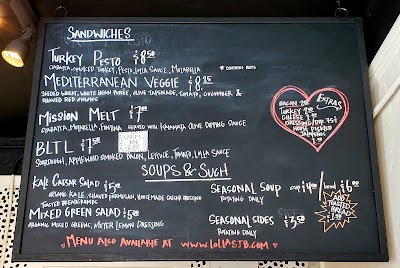 SANDWICHES
TURKEY PESTO $8.50
CIABATTA, SMOKED TURKEY, PESTO, LOLLA SAUCE, MOZZARELLA
* CONTAINS NUTS
MEDITERRANEAN VEGGIE $8.25
SEEDED WHEAT, WHITE BEAN PUREE, OLIVE TAPENADE, TOMATO, CUCUMBER &
SHAVED RED ONIONS
MISSION MELT $7.00
CIABATTA, MOZZARELLA, FONTINA SERVED WITH KALAMATA OLIVE DIPPING SAUCE
BLTL $7
SOURDOUGH, APPLEWOOD SMOKED BACON, LETTUCE, TOMATO, LOLLA SAUCE
EXTRAS
BACON
TURKEY
CHEESE
DRESSING
HOUSE PICKLED
JALAPEÑOS
SOUPS & SUCH
KALE CAESAR SALAD
ORGANIC KALE, SHAVED PARMESAN, HOUSEMADE CAESAR DRESSING
TOASTED BREADCRUMBS
MIXED GREEN SALAD
ORGANIC MIXED GREENS, MEYER LEMON DRESSING
SEASONAL SOUP CUP $4/BOWL $6
ROTATING DAILY
SEASONAL SIDES $3.50
ROTATING DAILY
ADD
TOASTED
BREAD
$1
♥ MENU ALSO AVAILABLE AT WWW.LOLLASJB.COM ♥